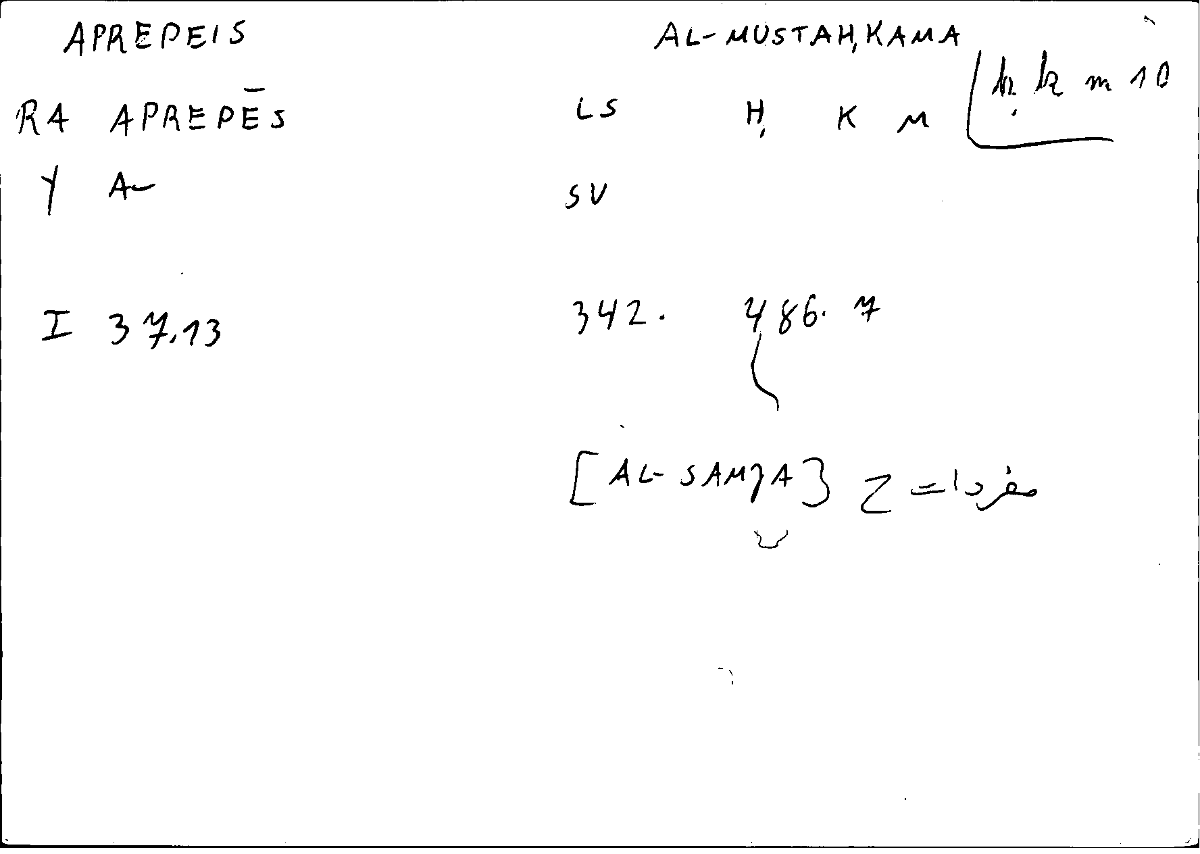 APREPEIS AL-MUSTAH,KAMA
RA APREPĒS LS H, K M ḥ k m 10
Y A~ SV
I 37.13 342. 486. 7
[AL-SAMJA] مفردات ح